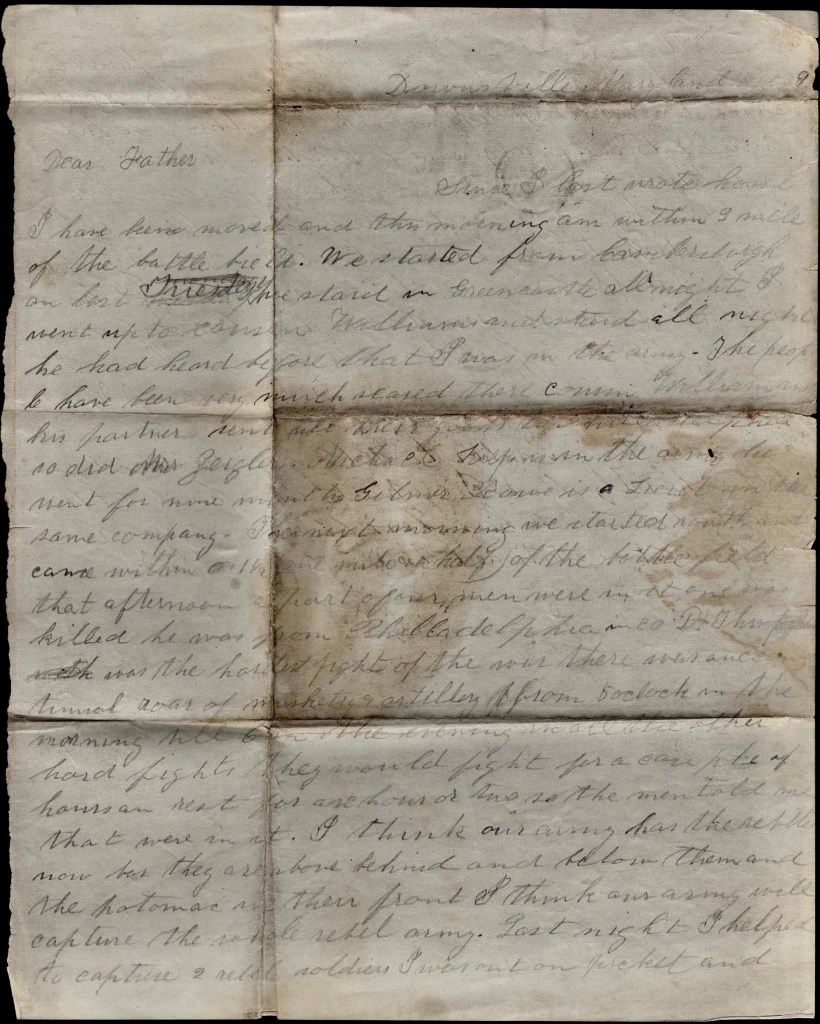 Downsville Maryland 9
Dear Father
Since I last wrote home
I have been moved and this morning am within 3 mile
of the battle field. We started from Cambersburgh
on last we staid in Greencastle all night I
went up to cousin Williams and staid all night
he had heard before that I was in the army - The peop
le have been very much scared there cousin William and
his partner sent all their goods to
so did Mr Zeigler. Michael is in the army he
went for nine months Gilmer is a in the
same company - The next morning we started south and
came within a mile of the battle field
that afternoon a part of our men were in it one was
killed he was from Philladelphia in co D. I
was the hardest fight of the war there was one con
tinual roar of muskets & artillery from 5 oclock in the
morning till 6 in the evening in all the other
hard fights they would fight for a couple of
hours an rest for an hour or two so the men told me
that were in it. I think our army has the rebels
now for they are above behind and below them and
the potomac in their front I think our army will
capture the whole rebel army. Last night I helped
to capture 2 rebel soldiers I was out on picket and